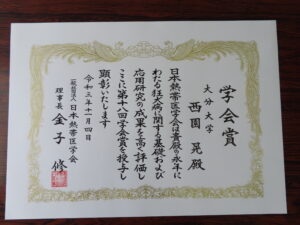 学会賞
大分大学
西園 晃殿
日本熱帯医学会は貴殿の永年に
わたる狂犬病に関する基礎および
応用研究の成果を高く評価し
ここに第十八回学会賞を授与し
顕彰いたします
令和三年十一月四日
一般社団法人日本熱帯医学会
理事長 金子 修